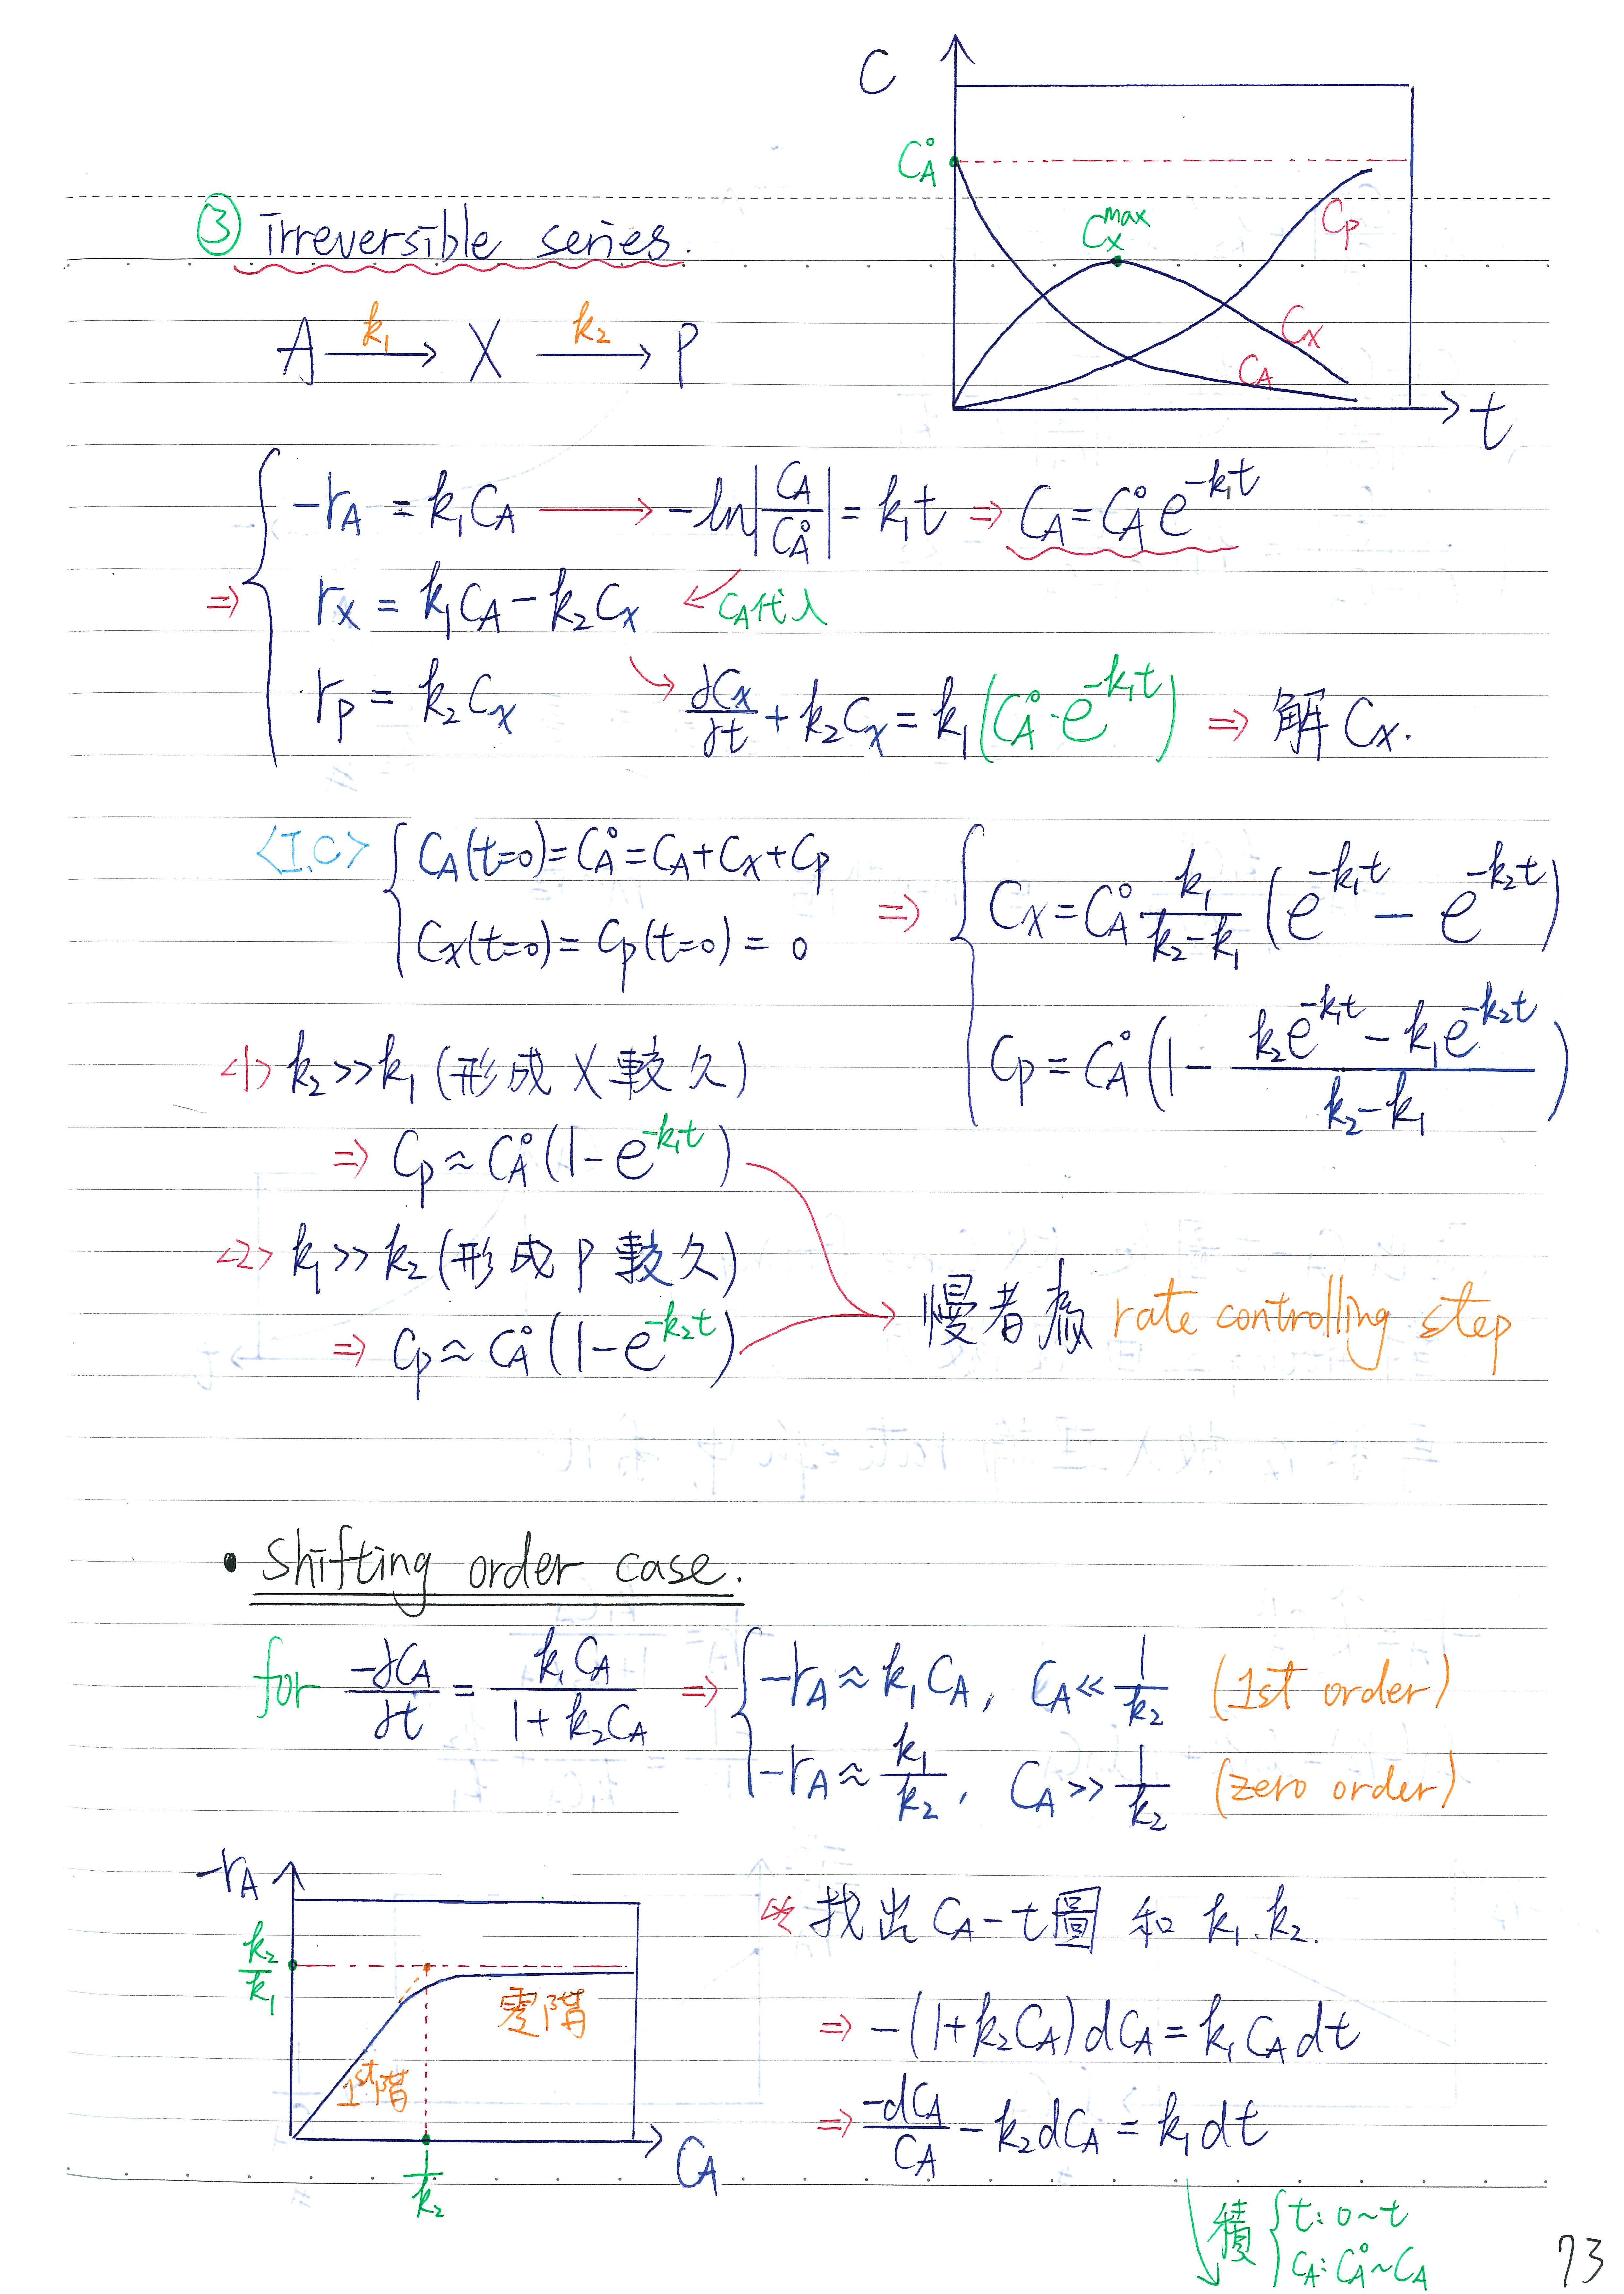 C
C_A°
C_X^max
C_P
C_X
C_A
t
③ irreversible series.
A —k₁→ X —k₂→ P
⇒ { -r_A = k₁C_A → -ln|C_A/C_A°| = k₁t ⇒ C_A = C_A° e^{-k₁t}
r_X = k₁C_A - k₂C_X ← C_A代入
r_P = k₂C_X ↘ dC_X/dt + k₂C_X = k₁(C_A°·e^{-k₁t}) ⇒ 解 C_X.
<I.C> { C_A(t=0) = C_A° = C_A + C_X + C_P
C_X(t=0) = C_P(t=0) = 0
⇒ { C_X = C_A° k₁/(k₂-k₁) (e^{-k₁t} - e^{-k₂t})
C_P = C_A° (1 - (k₂e^{-k₁t} - k₁e^{-k₂t})/(k₂-k₁))
<1> k₂>>k₁ (形成 X 較久)
⇒ C_P ≈ C_A° (1-e^{-k₁t})
<2> k₁>>k₂ (形成 P 較久)
⇒ C_P ≈ C_A° (1-e^{-k₂t})
→ 慢者為 rate controlling step
• Shifting order case.
for -dC_A/dt = k₁C_A/(1+k₂C_A) ⇒ { -r_A ≈ k₁C_A, C_A << 1/k₂ (1st order)
-r_A ≈ k₁/k₂, C_A >> 1/k₂ (zero order)
-r_A
k₂/k₁
零階
1st階
1/k₂
C_A
※ 找出 C_A-t 圖 和 k₁.k₂.
⇒ -(1+k₂C_A)dC_A = k₁C_A dt
⇒ -dC_A/C_A - k₂dC_A = k₁dt
↓ 積 { t: 0~t
C_A: C_A°~C_A
73